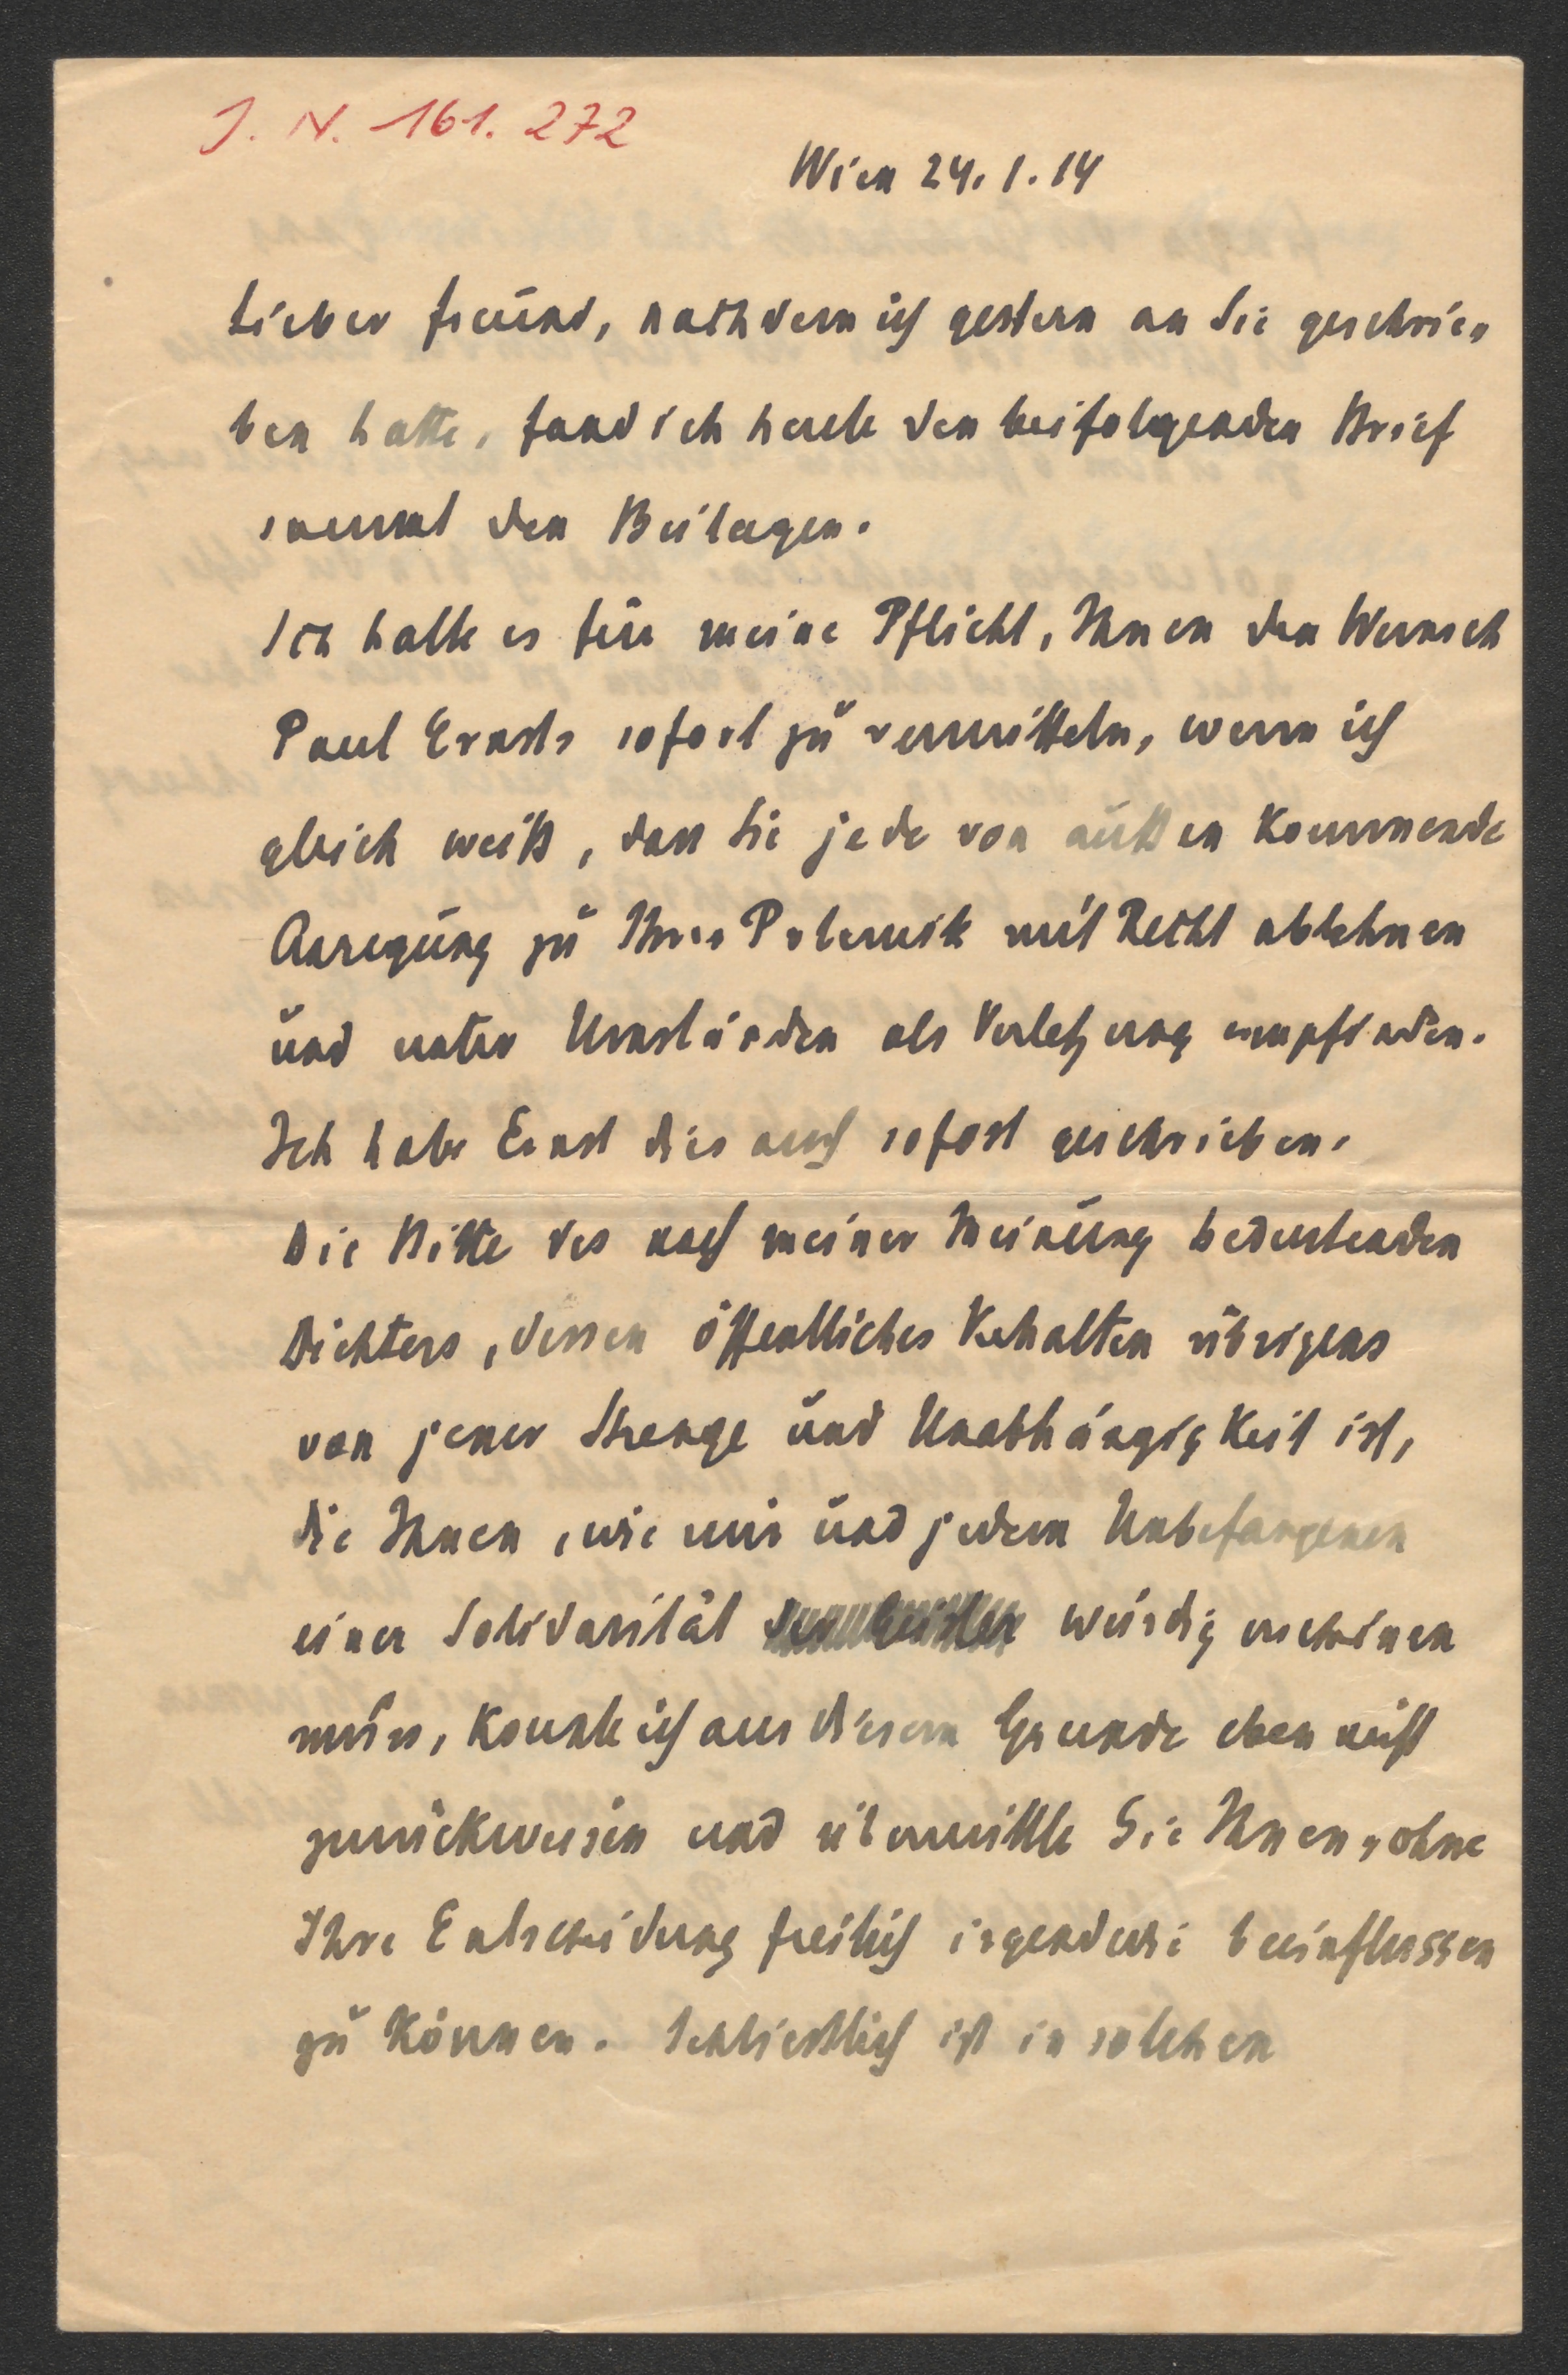 J. N. 161.272
Wien 24.1.14
Lieber Freund, nachdem ich gestern an Sie geschrie-
ben hatte, fand ich heute den beifolgenden Brief
samt den Beilagen.
Ich halte es für meine Pflicht, Ihnen den Wunsch
Paul Ernsts sofort zu vermitteln, wenn ich
gleich weiß, dass Sie jede von außen kommende
Anregung zu Ihrer Polemik mit Recht ablehnen
und unter Umständen als Verletzung empfinden.
Ich habe Ernst dies auch sofort geschrieben.
Die Bitte des nach meiner Meinung bedeutenden
Dichters, dessen öffentliches Verhalten übrigens
von jener Strenge und Unabhängigkeit ist,
die Ihnen, wie mir und jedem Unbefangenen
einer Solidarität würdig erscheinen
muss, konnte ich aus diesem Grunde eben nicht
zurückweisen und übermittle Sie Ihnen, ohne
Ihre Entscheidung freilich irgendwie beeinflussen
zu können. Schließlich ist in solchen